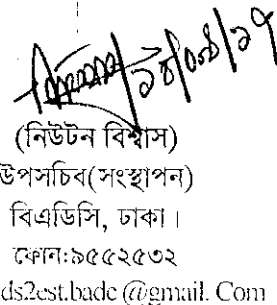 (নিউটন বিশ্বাস)
উপসচিব(সংস্থাপন)
বিএডিসি, ঢাকা।
ফোন:৯৫৫২৫৩২
ds2est.badc @gmail. Com